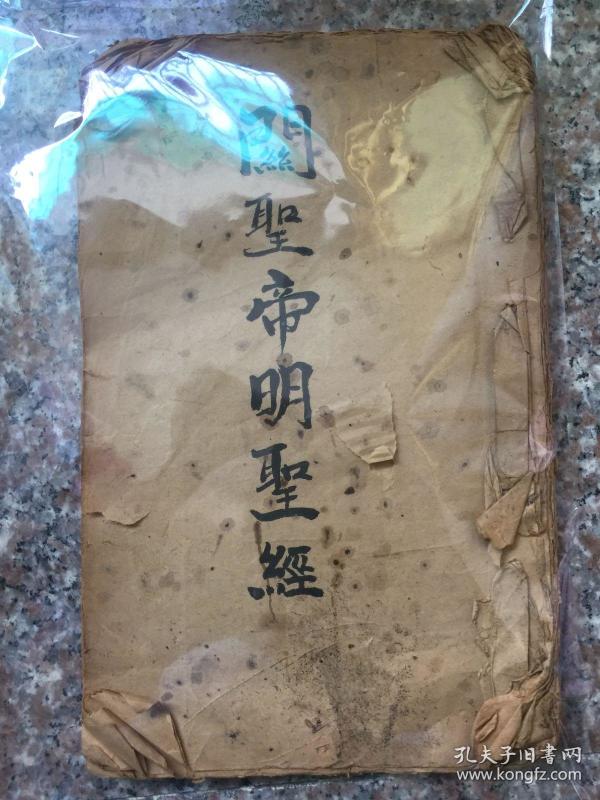 關聖帝明聖經
孔夫子旧書网
www.kongfz.com